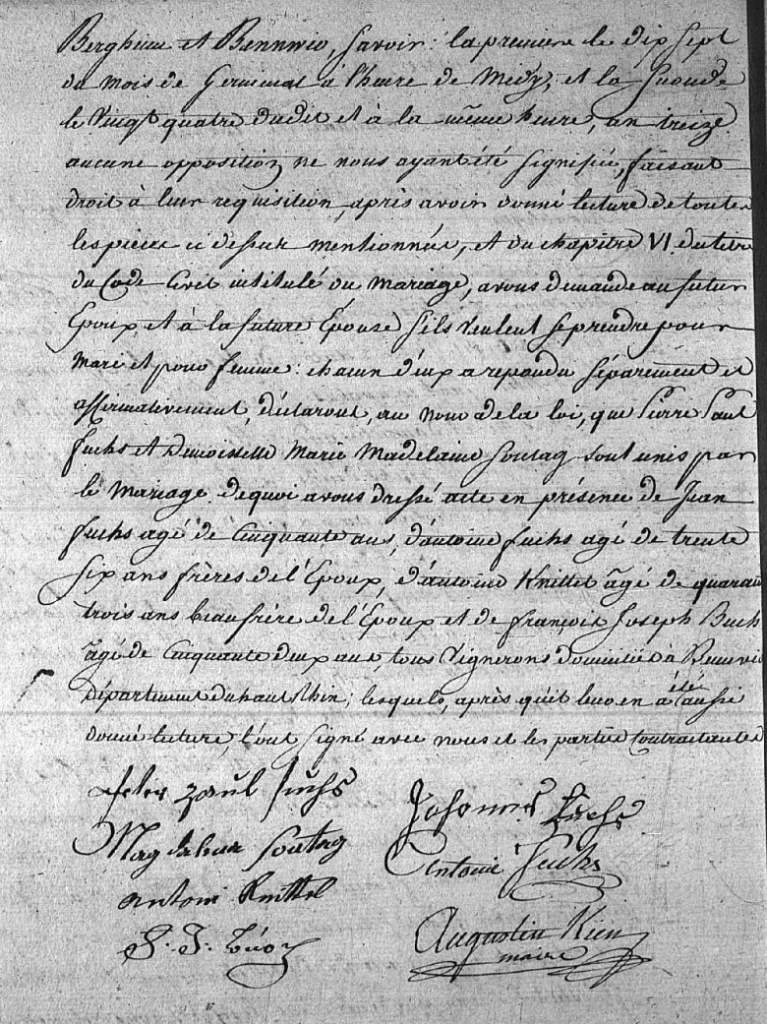 Bergheim et Bennwir, savoir: la premiere le dix sept
du mois de Germinal à l'heure de Midÿ, et la seconde
le vingt quatre dudit et à la même heure, an treize
aucune opposition ne nous ayant été signifiée, faisant
droit à leur requisition, après avoir donné lecture de toutes
les pièces ci dessus mentionnées, et du chapitre VI. du titre
du Code Civil intitulé du Mariage, avons demandé au futur
Epoux et à la future Épouse s'ils veulent se prendre pour
Mari et pour femme: chacun d'eux a repondu séparément et
affirmativement, déclarons, au nom de la loi, que Pierre Paul
fuchs et Demoiselle Marie Madelaine Sontag sont unis par
le Mariage. de quoi avons dressé acte en présence de Jean
fuchs agé de Cinquante ans, d'antoine fuchs agé de trente
six ans frères de l'Epoux, d'antoine Knittel âgé de quarante
trois ans beaufrère de l'Epoux et de françois Joseph Buch
âgé de Cinquante deux ans, tous Vignerons domiciliés à Bennwir
département du haut Rhin; lesquels, après qu'il leur en a été aussi
donné lecture, l'ont signé avec nous et les parties Contractantes
Peter Paul fuchs
Johannes fuchs
Magdalena Sontag
Antoine fuchs
antoni Knittel
F. J.
Augustin Kien
maire